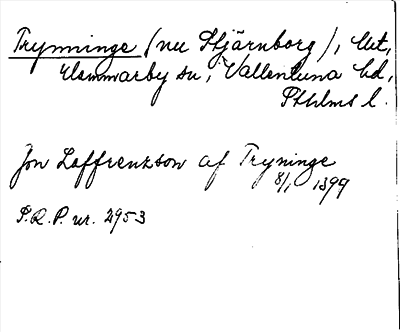 Trynninge (nu Stjärnborg), Ut,
Hammarby sn, Vallentuna hd,
Sthlms l.
Jon Laffrenzson af Tryninge
8/1 1399
S.R.P. nr. 2953